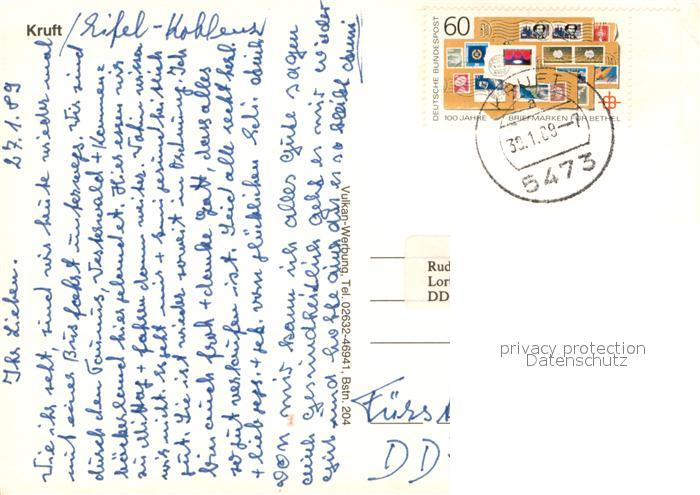 Kruft / Eifel-Koblenz
27.1.89
Ihr Lieben.
Wie ihr seht, sind wir heute wieder mal
mit einer Busfahrt unterwegs. Wir sind
durch den Taunus, Westerwald + Kannen=
bäckerland hier gelandet. Hier essen wir
zu Mittag + fahren dann weiter. Wohin wissen
wir nicht. Es geht mir + sind gesundheitlich
gut. Sie ist wieder soweit in Ordnung. Ich
bin auch froh + danke Gott, dass alles
so gut verlaufen ist. Seid alle recht herzl.
+ lieb gegr. + geh. von
von mir kann ich alles Gute sagen
auch gesundheitlich geht es mir wieder
gut und hoffe auch das es so bleibt
Vulkan-Werbung, Tel. 02632-46941, Bstn. 204
DEUTSCHE BUNDESPOST
60
100 JAHRE BRIEFMARKEN FÜR BETHEL
KRUFT
a
30.1.89-7
5473
Rud
Lort
DD
Fürs
DD
privacy protection
Datenschutz